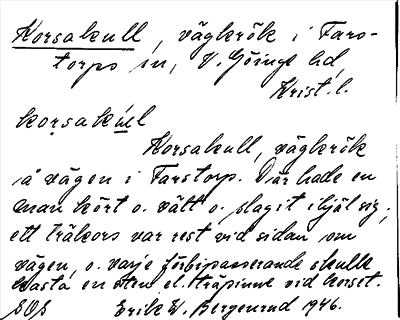 Korsakull, vägkrök i Fars-
torps sn, V. Göinge hd,
Krist. l.
korsakúl
Korsakull, vägkrök
på vägen i Farstorp. Där hade en
man kört o. vält o. slagit ihjäl sig;
ett träkors var rest vid sidan om
vägen, o. varje förbipasserande skulle
kasta en sten el. träpinne vid korset.
SOS Erik W. Bergenrud 1946.